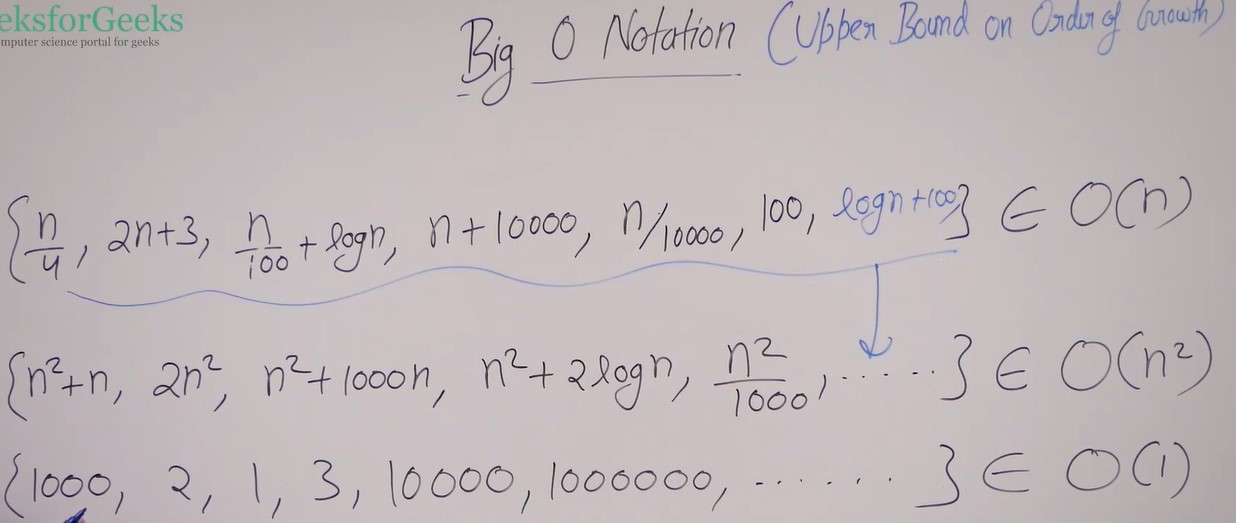 eksforGeeks
mputer science portal for geeks
Big O Notation (Upper Bound on Order of Growth)
{n/4, 2n+3, n/100 + logn, n+10000, n/10000, 100, logn+100} ∈ O(n)
{n²+n, 2n², n²+1000n, n²+2logn, n²/1000, ......} ∈ O(n²)
{1000, 2, 1, 3, 10000, 1000000, .......} ∈ O(1)